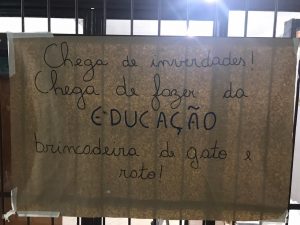 Chega de inverdades!
Chega de fazer da
EDUCAÇÃO
brincadeira de gato e
rato!